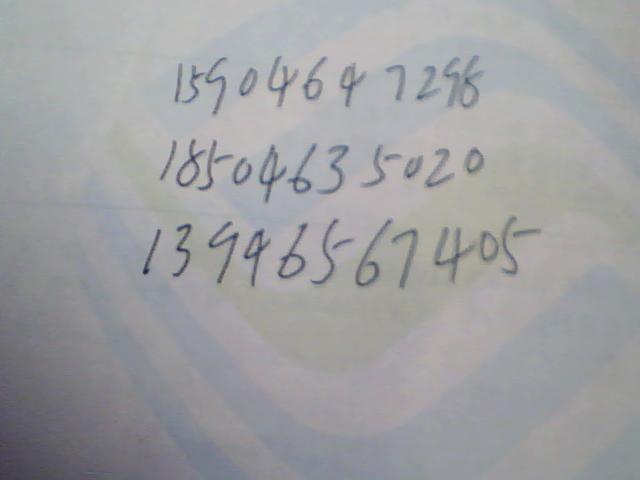 15904647298
18504635020
13946567405